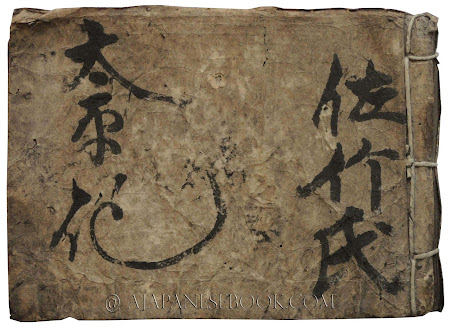 佐竹氏
太平記
© AJAPANESEBOOK.COM